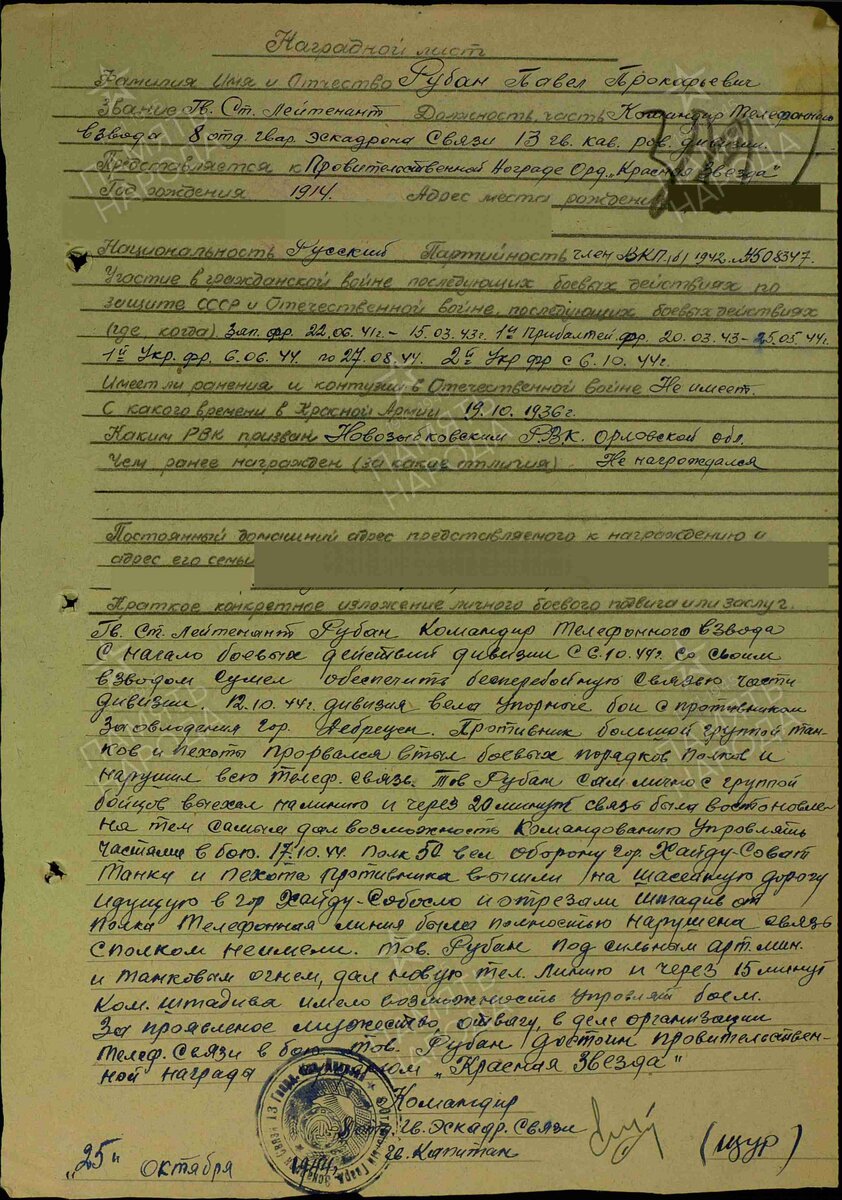 Наградной лист
Фамилия Имя и Отчество Рубан Павел Прокофьевич
Звание Гв. Ст. Лейтенант Должность, часть Командир Телефонного
взвода 8 отд. гвар. эскадрона Связи 13 гв. кав. ров. дивизии.
Представляется к Провительственной Награде Орд. „Красная Звезда"
Год рождения 1914. Адрес места рождения
Национальность Русский Партийность член ВКП(б) 1942. №508347.
Участие в гражданской войне последующих боевых действиях по
защите СССР и Отечественной войне, последующих боевых действиях
(где, когда). Зап. фр. 22.06.41г. – 15.03.43г. 1й Прибалтей. фр. 20.03.43 – 25.05.44г.
1й Укр. фр. 6.06.44. по 27.08.44. 2й Укр фр с 6.10.44г.
Имеет ли ранения и контузии в Отечественной войне Не имеет.
С какого времени в Красной Армии 19.10.1936г.
Каким РВК призван Новозыбковским Р.В.К. Орловской обл.
Чем ранее награжден (за какие отличия) Не награждался
Постоянный домашний адрес представляемого к награждению и
адрес его семьи
Краткое конкретное изложение личного боевого подвига или заслуг.
Гв. Ст. Лейтенант Рубан Командир Телефонного взвода
С начало боевых действий дивизии с 6.10.44г. со своим
взводом сумел обеспечить бесперебойную связью части
дивизии. 12.10.44г. дивизия вела упорные бои с противником
за овлодения гор. Дебрецен. Противник большой группой тан-
ков и пехоты прорвался в тыл боевых порядков полков и
нарушил всю телеф. связь. Тов Рубан сам лично с группой
бойцов выехал на линию и через 20 минут связь была востоновле-
на тем самым дал возможность командованию управлять
частями в бою. 17.10.44. полк 50 вел оборону гор. Хайду-Соват
Танки и пехота противника вышли на шассейную дорогу
идущую в гор Хайду-Собосло и отрезали штадив от
полка Телефонная линия была полностью нарушена связь
с полком неимели. тов. Рубан под сильным арт. мин.
и танковым огнем, дал новую тел. линию и через 15 минут
Ком. штадива имело возможность управлят боем.
За проявленое мужество, отвагу, в деле организации
телеф. связи в бою тов. Рубан достоин провительствен-
ной награда орденом „Красная Звезда"
Командир
8 отд. гв. эскадр. связи
гв. Капитан (щур)
„25" октября 1944г.
ПАМЯТЬ НАРОДА